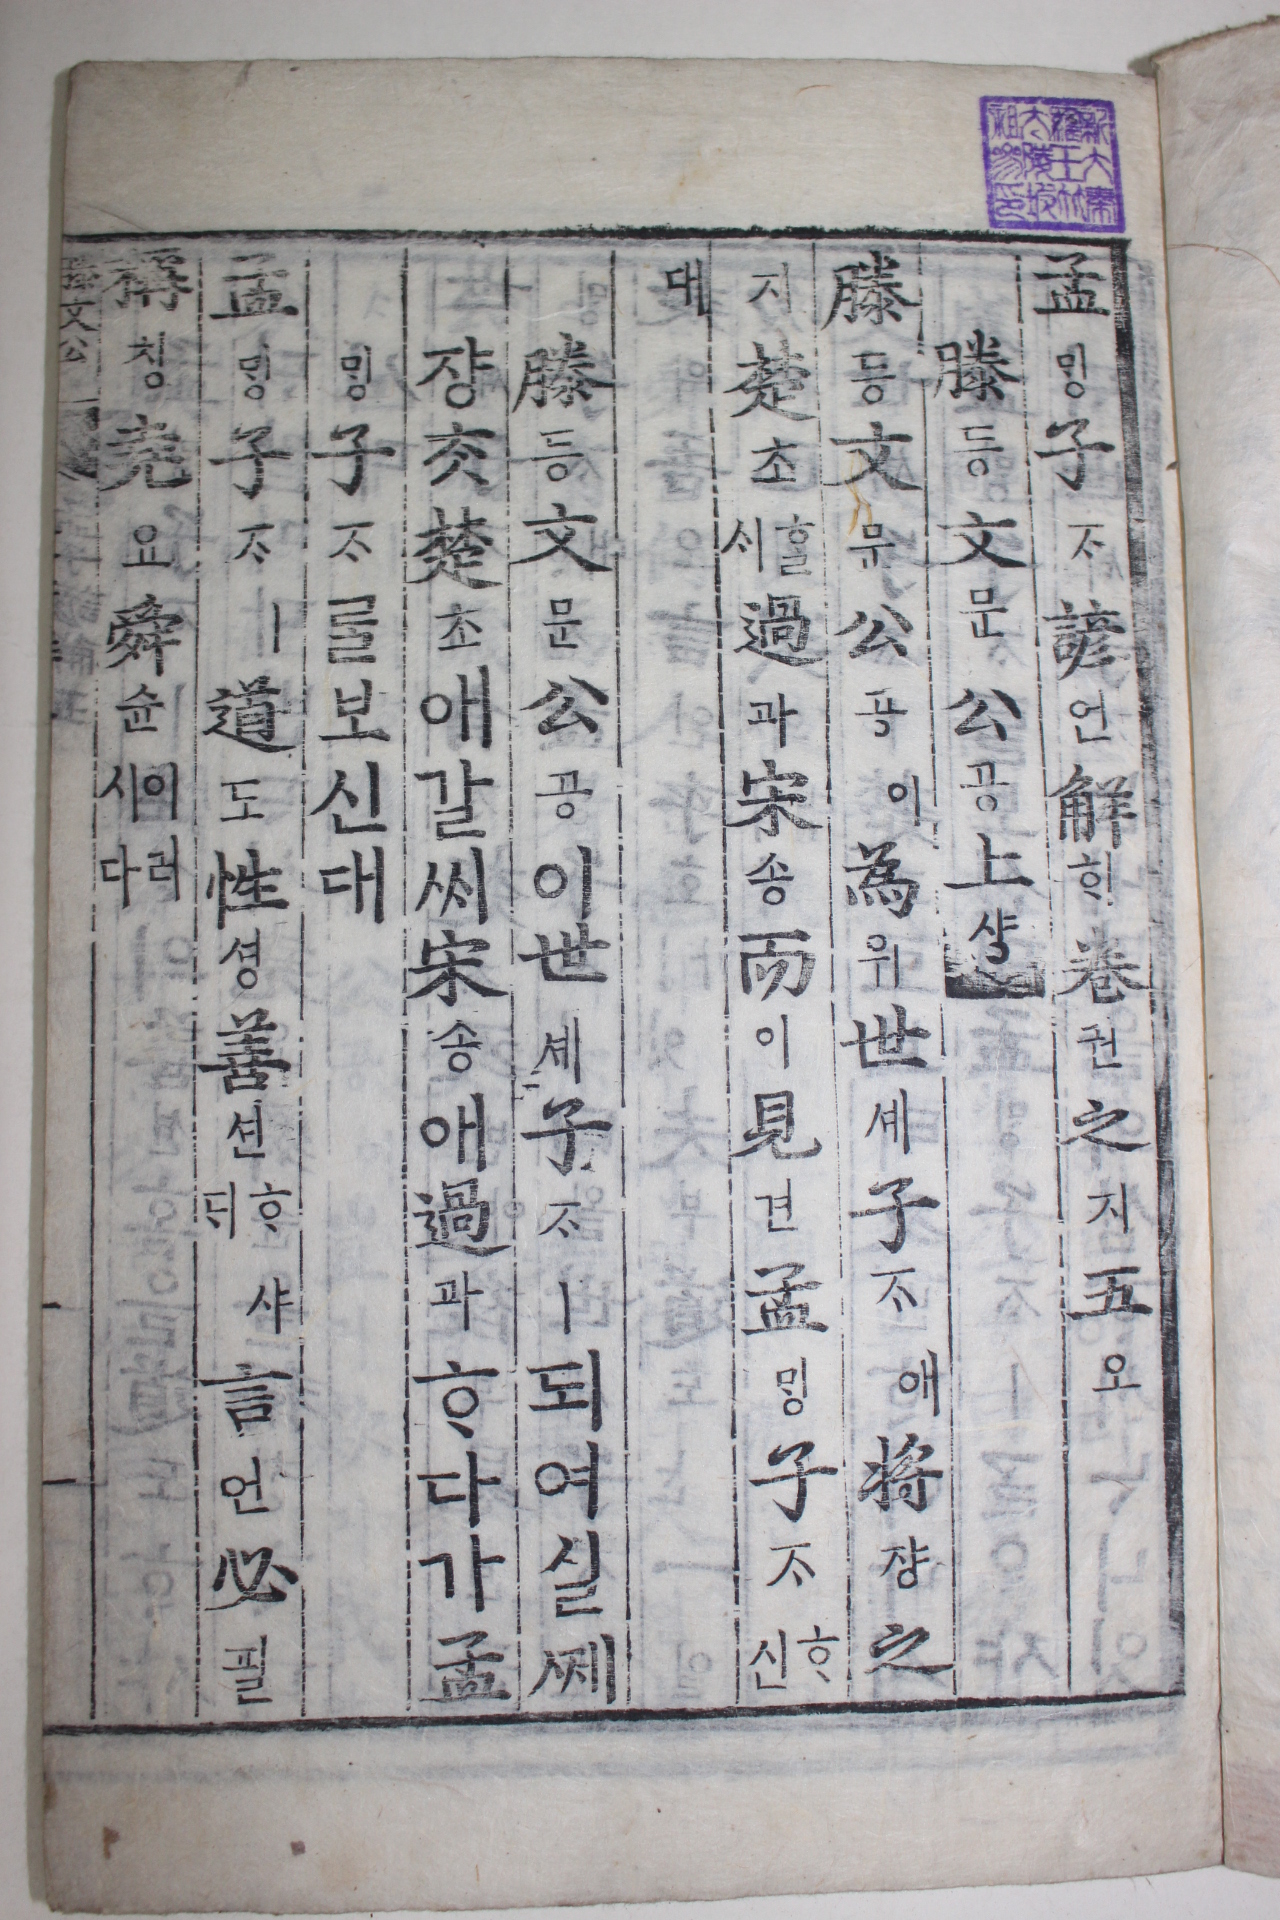 孟밍子ᄌᆞ諺언解ᄒᆡ卷권之지五오
滕등文문公공上샹
滕등文문公공이為위世셰子ᄌᆞ애將쟝之
지楚초ᄒᆞᆯ시過과宋송而이見견孟밍子ᄌᆞᄒᆞ신
대
滕등文문公공이世셰子ᄌᆞㅣ되여실쩨
쟝ᄎᆞᆺ楚초애갈씨宋송애過과ᄒᆞ다가孟
밍子ᄌᆞ를보신대
孟밍子ᄌᆞㅣ道도性셩善션ᄒᆞ샤되言언必필
稱칭堯요舜슌이러시다
文公